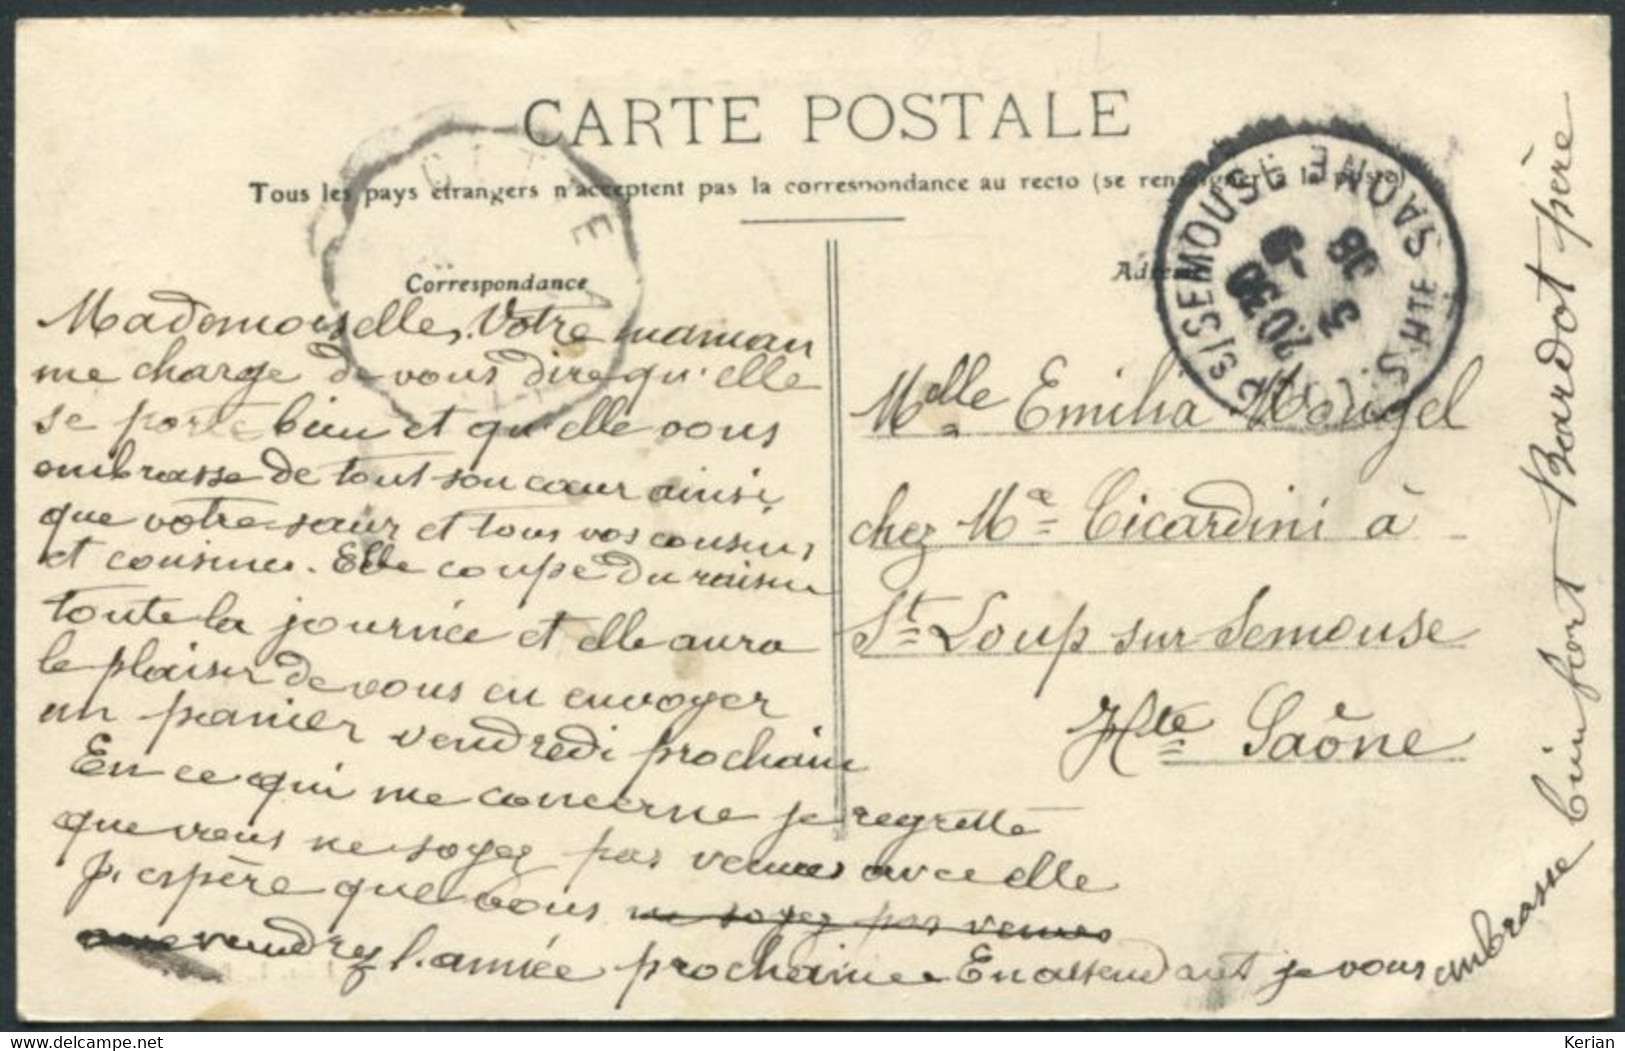 CARTE POSTALE
Tous les pays étrangers n'acceptent pas la correspondance au recto (se renseigner à la poste)
Correspondance
Mademoiselle, Votre maman
me charge de vous dire qu'elle
se porte bien et qu'elle vous
embrasse de tout son cœur ainsi
que votre sœur et tous vos cousins
et cousines. Elle coupe du raisin
toute la journée et elle aura
le plaisir de vous en envoyer
un panier vendredi prochain
En ce qui me concerne je regrette
que vous ne soyez pas venue avec elle
J'espère que vous ne soyez pas venue
viendrez l'année prochaine En attendant je vous embrasse
bien fort Bardot père
Adresse
Melle Emilia Mougel
chez Me Cicardini à
St Loup sur Semouse
Hte Saône
ST LOUP S/SEMOUSE
HTE SAONE
20 30
3 - 9
Kerian